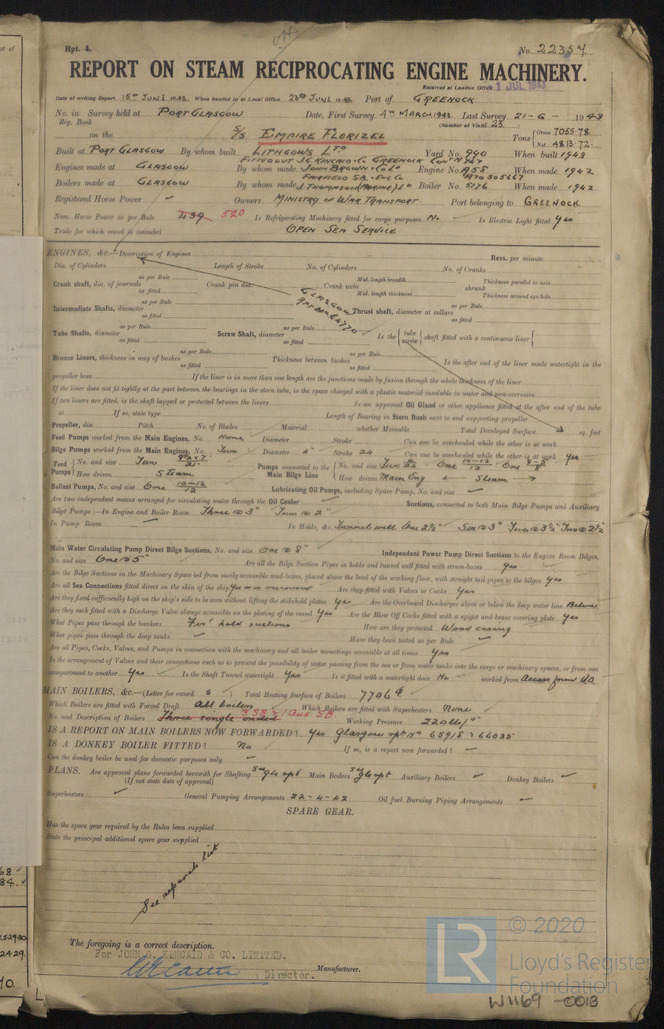 Rpt. 4.
No. 22354
REPORT ON STEAM RECIPROCATING ENGINE MACHINERY.
Received at London Office 1 JUL 1943
Date of writing Report 15TH JUNE 1943. When handed in at Local Office 28TH JUNE 1943. Port of GREENOCK
No. in Survey held at PORT GLASGOW Date, First Survey 4TH MARCH 1943 Last Survey 21-6-1943
Reg. Book (Number of Visits 23
on the S/S EMPIRE FLORIZEL Tons Gross 7055.78 Net 4813.72.
Built at PORT GLASGOW By whom built LITHGOWS LTD Yard No. 990 When built 1943
FITTED OUT J.G. KINCAID & CO GREENOCK
Engines made at GLASGOW By whom made JOHN BROWN & CO LD Engine No. A955 When made 1942
FAIRFIELD S.B. & E. CO
Boilers made at GLASGOW By whom made J. THOMPSON (MARINE) LD Boiler No. 5176 When made 1942
Registered Horse Power Owners MINISTRY OF WAR TRANSPORT Port belonging to GREENOCK
Nom. Horse Power as per Rule 439 520 Is Refrigerating Machinery fitted for cargo purposes No Is Electric Light fitted Yes
Trade for which vessel is intended OPEN SEA SERVICE
ENGINES, &c.—Description of Engines Revs. per minute
Dia. of Cylinders Length of Stroke No. of Cylinders No. of Cranks
Crank shaft, dia. of journals as per Rule as fitted Crank pin dia. Crank webs Mid. length breadth Mid. length thickness shrunk Thickness parallel to axis Thickness around eye-hole
GLASGOW
Intermediate Shafts, diameter as per Rule as fitted Thrust shaft, diameter at collars as per Rule as fitted
Tube Shafts, diameter as per Rule as fitted Screw Shaft, diameter as per Rule as fitted Is the { tube screw } shaft fitted with a continuous liner {
Bronze Liners, thickness in way of bushes as per Rule as fitted Thickness between bushes as per Rule as fitted Is the after end of the liner made watertight in the
propeller boss If the liner is in more than one length are the junctions made by fusion through the whole thickness of the liner
If the liner does not fit tightly at the part between the bearings in the stern tube, is the space charged with a plastic material insoluble in water and non-corrosive
If two liners are fitted, is the shaft lapped or protected between the liners Is an approved Oil Gland or other appliance fitted at the after end of the tube
If so, state type Length of Bearing in Stern Bush next to and supporting propeller
Propeller, dia. Pitch No. of Blades Material whether Moveable Total Developed Surface sq. feet
Feed Pumps worked from the Main Engines, No. None Diameter Stroke Can one be overhauled while the other is at work
Bilge Pumps worked from the Main Engines, No. Two Diameter 4" Stroke 24 Can one be overhauled while the other is at work Yes
Feed Pumps { No. and size Two How driven Steam Pumps connected to the Main Bilge Line { No. and size Two One 10-12/12 One How driven Main Eng Steam
Ballast Pumps, No. and size One 10-12/12 Lubricating Oil Pumps, including Spare Pump, No. and size
Are two independent means arranged for circulating water through the Oil Cooler Suctions, connected to both Main Bilge Pumps and Auxiliary
Bilge Pumps:—In Engine and Boiler Room Three @ 3" Two @ 2"
In Pump Room In Holds, &c. Tunnel well One 2½" Six @ 3" Two @ 3½" Two @ 2½
Main Water Circulating Pump Direct Bilge Suctions, No. and size One @ 8" Independent Power Pump Direct Suctions to the Engine Room Bilges,
No. and size One @ 5" Are all the Bilge Suction Pipes in holds and tunnel well fitted with strum-boxes Yes
Are the Bilge Suctions in the Machinery Space led from easily accessible mud-boxes, placed above the level of the working floor, with straight tail pipes to the bilges Yes
Are all Sea Connections fitted direct on the skin of the ship Yes Are they fitted with Valves or Cocks Yes
Are they fixed sufficiently high on the ship's side to be seen without lifting the stokehold plates Yes Are the Overboard Discharges above or below the deep water line Below
Are they each fitted with a Discharge Valve always accessible on the plating of the vessel Yes Are the Blow Off Cocks fitted with a spigot and brass covering plate Yes
What Pipes pass through the bunkers For'd hold suctions How are they protected Wood casing
What pipes pass through the deep tanks Have they been tested as per Rule
Are all Pipes, Cocks, Valves, and Pumps in connection with the machinery and all boiler mountings accessible at all times Yes
Is the arrangement of Valves and their connections such as to prevent the possibility of water passing from the sea or from water tanks into the cargo or machinery spaces, or from one
compartment to another Yes Is the Shaft Tunnel watertight Yes Is it fitted with a watertight door No worked from Access from U.D.
MAIN BOILERS, &c.—(Letter for record S) Total Heating Surface of Boilers 7706
Which Boilers are fitted with Forced Draft All boilers Which Boilers are fitted with Superheaters None
No. and Description of Boilers Three single ended Working Pressure 220 lb/□"
IS A REPORT ON MAIN BOILERS NOW FORWARDED? Yes Glasgow rpt No
IS A DONKEY BOILER FITTED? No If so, is a report now forwarded?
Can the donkey boiler be used for domestic purposes only
PLANS. Are approved plans forwarded herewith for Shafting See Gls rpt Main Boilers See Gls rpt Auxiliary Boilers Donkey Boilers
(If not state date of approval)
Superheaters General Pumping Arrangements 22-4-42 Oil fuel Burning Piping Arrangements
SPARE GEAR.
Has the spare gear required by the Rules been supplied
State the principal additional spare gear supplied
See separate list
The foregoing is a correct description.
For JOHN G. KINCAID & CO. LIMITED.
Director. Manufacturer.
LR © 2020
Lloyd's Register
Foundation
W1169-0013